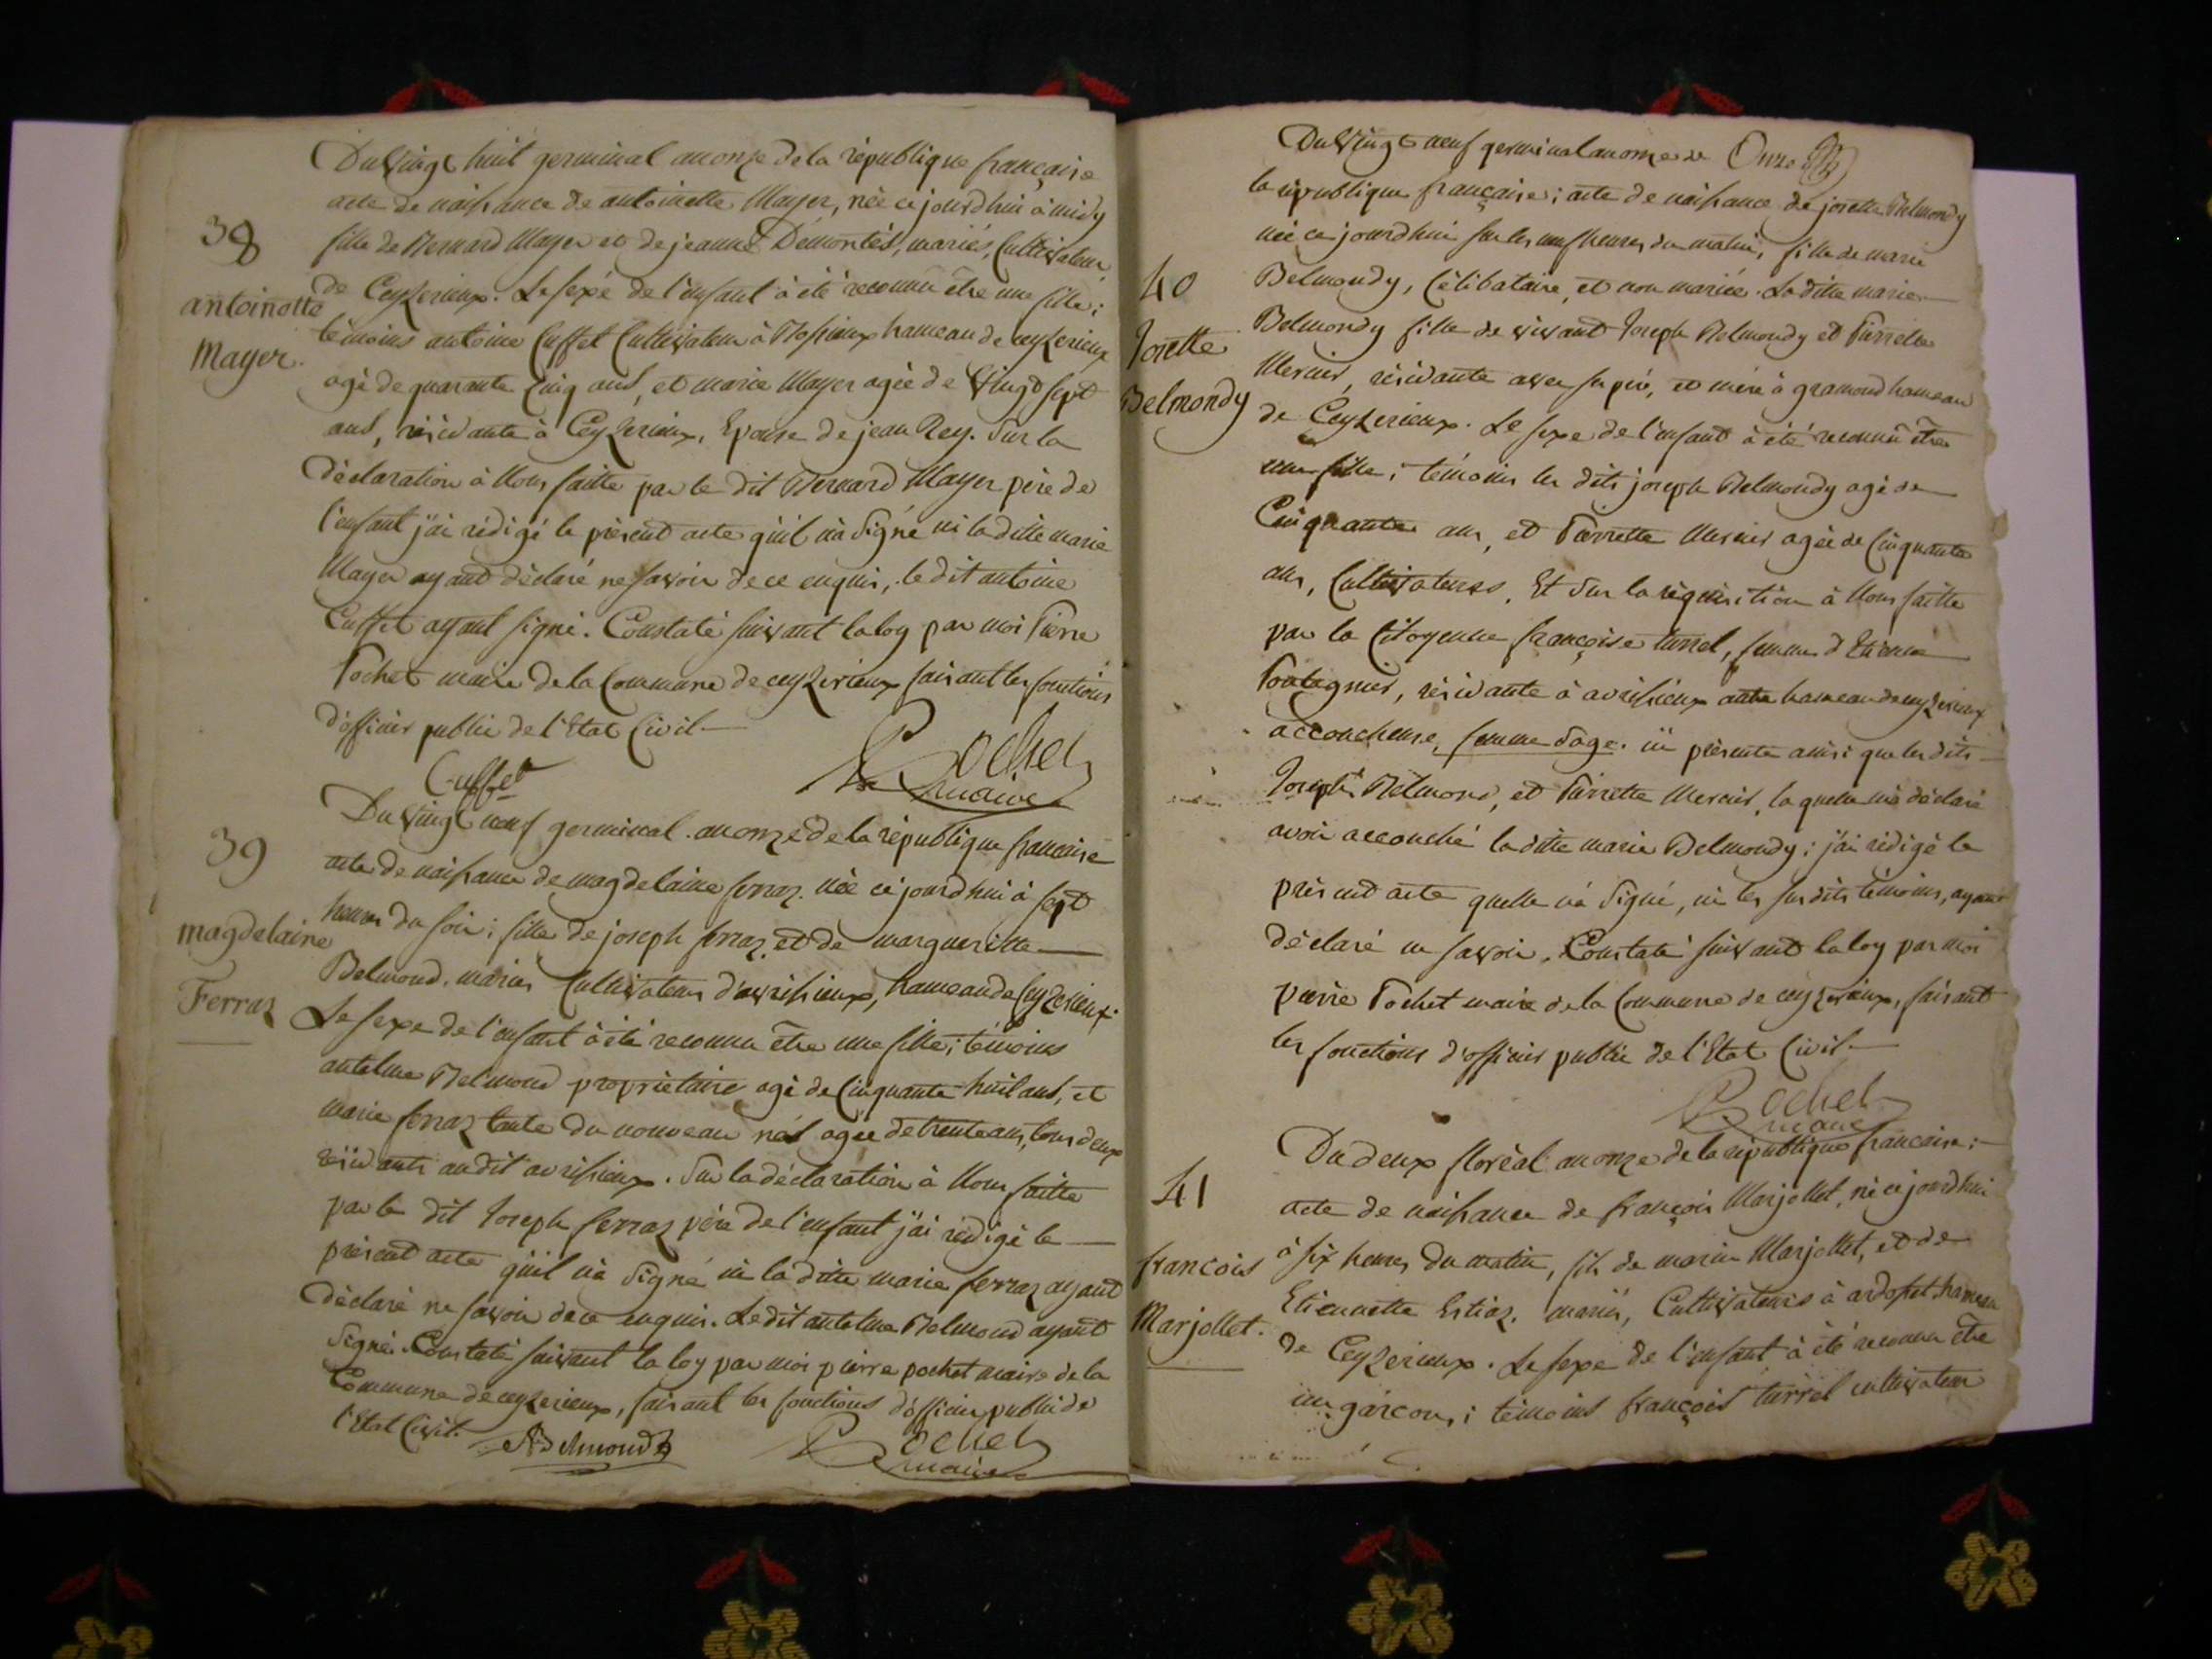 38
antoinette
Mayer.
Du Vingt huit germinal an onze de la république française
acte de naissance de antoinette Mayer, née ce jourd'hui à midy
fille de Bernard Mayer et de jeanne Démontés, mariés, Cultivateurs
de Ceyzerieux. Le sexe de l'enfant à été reconnu être une fille;
témoins antoine Cuffet Cultivateur à hameau de ceyzerieux
agé de quarante Cinq ans, et marie Mayer agée de Vingt sept
ans, résidante à Ceyzerieux, Epouse de jean Rey. Sur la
déclaration à Nous faitte par le dit Bernard Mayer père de
l'enfant j'ai rédigé le présent acte qu'il n'a Signé ni la ditte marie
Mayer ayant déclaré ne savoir de ce enquis, le dit antoine
Cuffet ayant signé. Constaté suivant la loy par moi Pierre
Pochet maire de la Commune de ceyzerieux faisant les fonctions
d'officier public de l'Etat Civil
Cuffet
Pochet
maire
39
magdelaine
Ferraz
Du Vingt neuf germinal an onze de la république francaise
acte de naissance de magdelaine ferraz. née ce jourd'hui à sept
heures du soir; fille de joseph ferraz, et de margueritte
Belmond, mariés Cultivateurs d'avrissieux, hameau de Ceyzerieux.
Le sexe de l'enfant à été reconnu être une fille; témoins
antelme Belmond propriétaire agé de Cinquante huit ans, et
marie ferraz tante du nouveau né agée de trente ans, tous deux
résidants audit avrissieux. Sur la déclaration à Nous faitte
par le dit Joseph ferraz père de l'enfant j'ai rédigé le
présent acte qu'il n'a Signé ni la ditte marie ferraz ayant
déclaré ne savoir de ce enquis. Ledit antelme Belmond ayant
Signé. Constaté suivant la loy par moi pierre pochet maire de la
Commune de ceyzerieux, faisant les fonctions d'officier public de
l'Etat Civil.
ABelmond
Pochet
maire
40
Josette
Belmondy
Du Vingt neuf germinal an onze de Onze
la république française; acte de naissance de josette Belmondy
née ce jourd'hui sur les neuf heures du matin, fille de marie
Belmondy, Célibataire, et non mariée. La ditte marie
Belmondy fille de vivant Joseph Belmondy et Pierrette
Mercier, résidante avec ses père, et mère à gramond hameau
de Ceyzerieux. Le sexe de l'enfant à été reconnu être
une fille; témoins les dits joseph Belmondy agé de
Cinquante ans, et Pierrette Mercier agée de Cinquante
ans, Cultivateurs. Et Sur la réquisition à Nous faitte
par la Citoyenne françoise turrel, femme d'Etienne
résidante à avrissieux autre hameau de ceyzerieux
accoucheuse, femme Sage. ici présente ainsi que les dits
Joseph Belmond, et Pierrette Mercier, la quelle m'a déclaré
avoir accouché la ditte marie Belmondy; j'ai rédigé le
présent acte quelle n'a Signé, ni les susdits témoins, ayant
déclaré ne savoir. Constaté suivant la loy par moi
pierre Pochet maire de la Commune de ceyzerieux, faisant
les fonctions d'officier public de l'Etat Civil
Pochet
maire
41
francois
Marjollet.
Du deux floréal an onze de la république francaise;
acte de naissance de françois Marjollet, né ce jourd'hui
à six heures du matin, fils de marin Marjollet, et de
Etiennette Estiaz. mariés, Cultivateurs à ardosset hameau
de Ceyzerieux. Le sexe de l'enfant à été reconnu être
un garçon; témoins françois turrel cultivateur